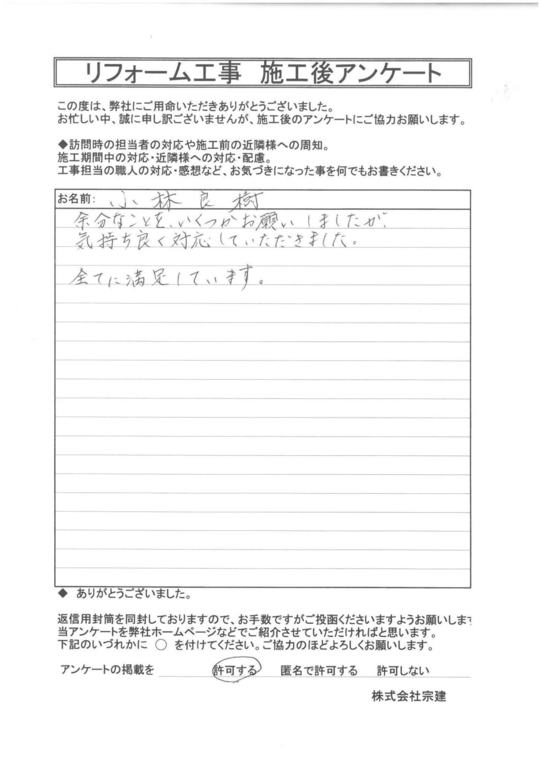 リフォーム工事 施工後アンケート
この度は、弊社にご用命いただきありがとうございました。
お忙しい中、誠に申し訳ございませんが、施工後のアンケートにご協力お願いします。
◆訪問時の担当者の対応や施工前の近隣様への周知。
施工期間中の対応・近隣様への対応・配慮。
工事担当の職人の対応・感想など、お気づきになった事を何でもお書きください。
お名前: 小林良樹
余分なことを、いくつかお願いしましたが、
気持ち良く対応していただきました。
全てに満足しています。
◆ ありがとうございました。
返信用封筒を同封しておりますので、お手数ですがご投函くださいますようお願いします
当アンケートを弊社ホームページなどでご紹介させていただければと思います。
下記のいづれかに ○ を付けてください。ご協力のほどよろしくお願いします。
アンケートの掲載を 許可する 匿名で許可する 許可しない
株式会社宗建